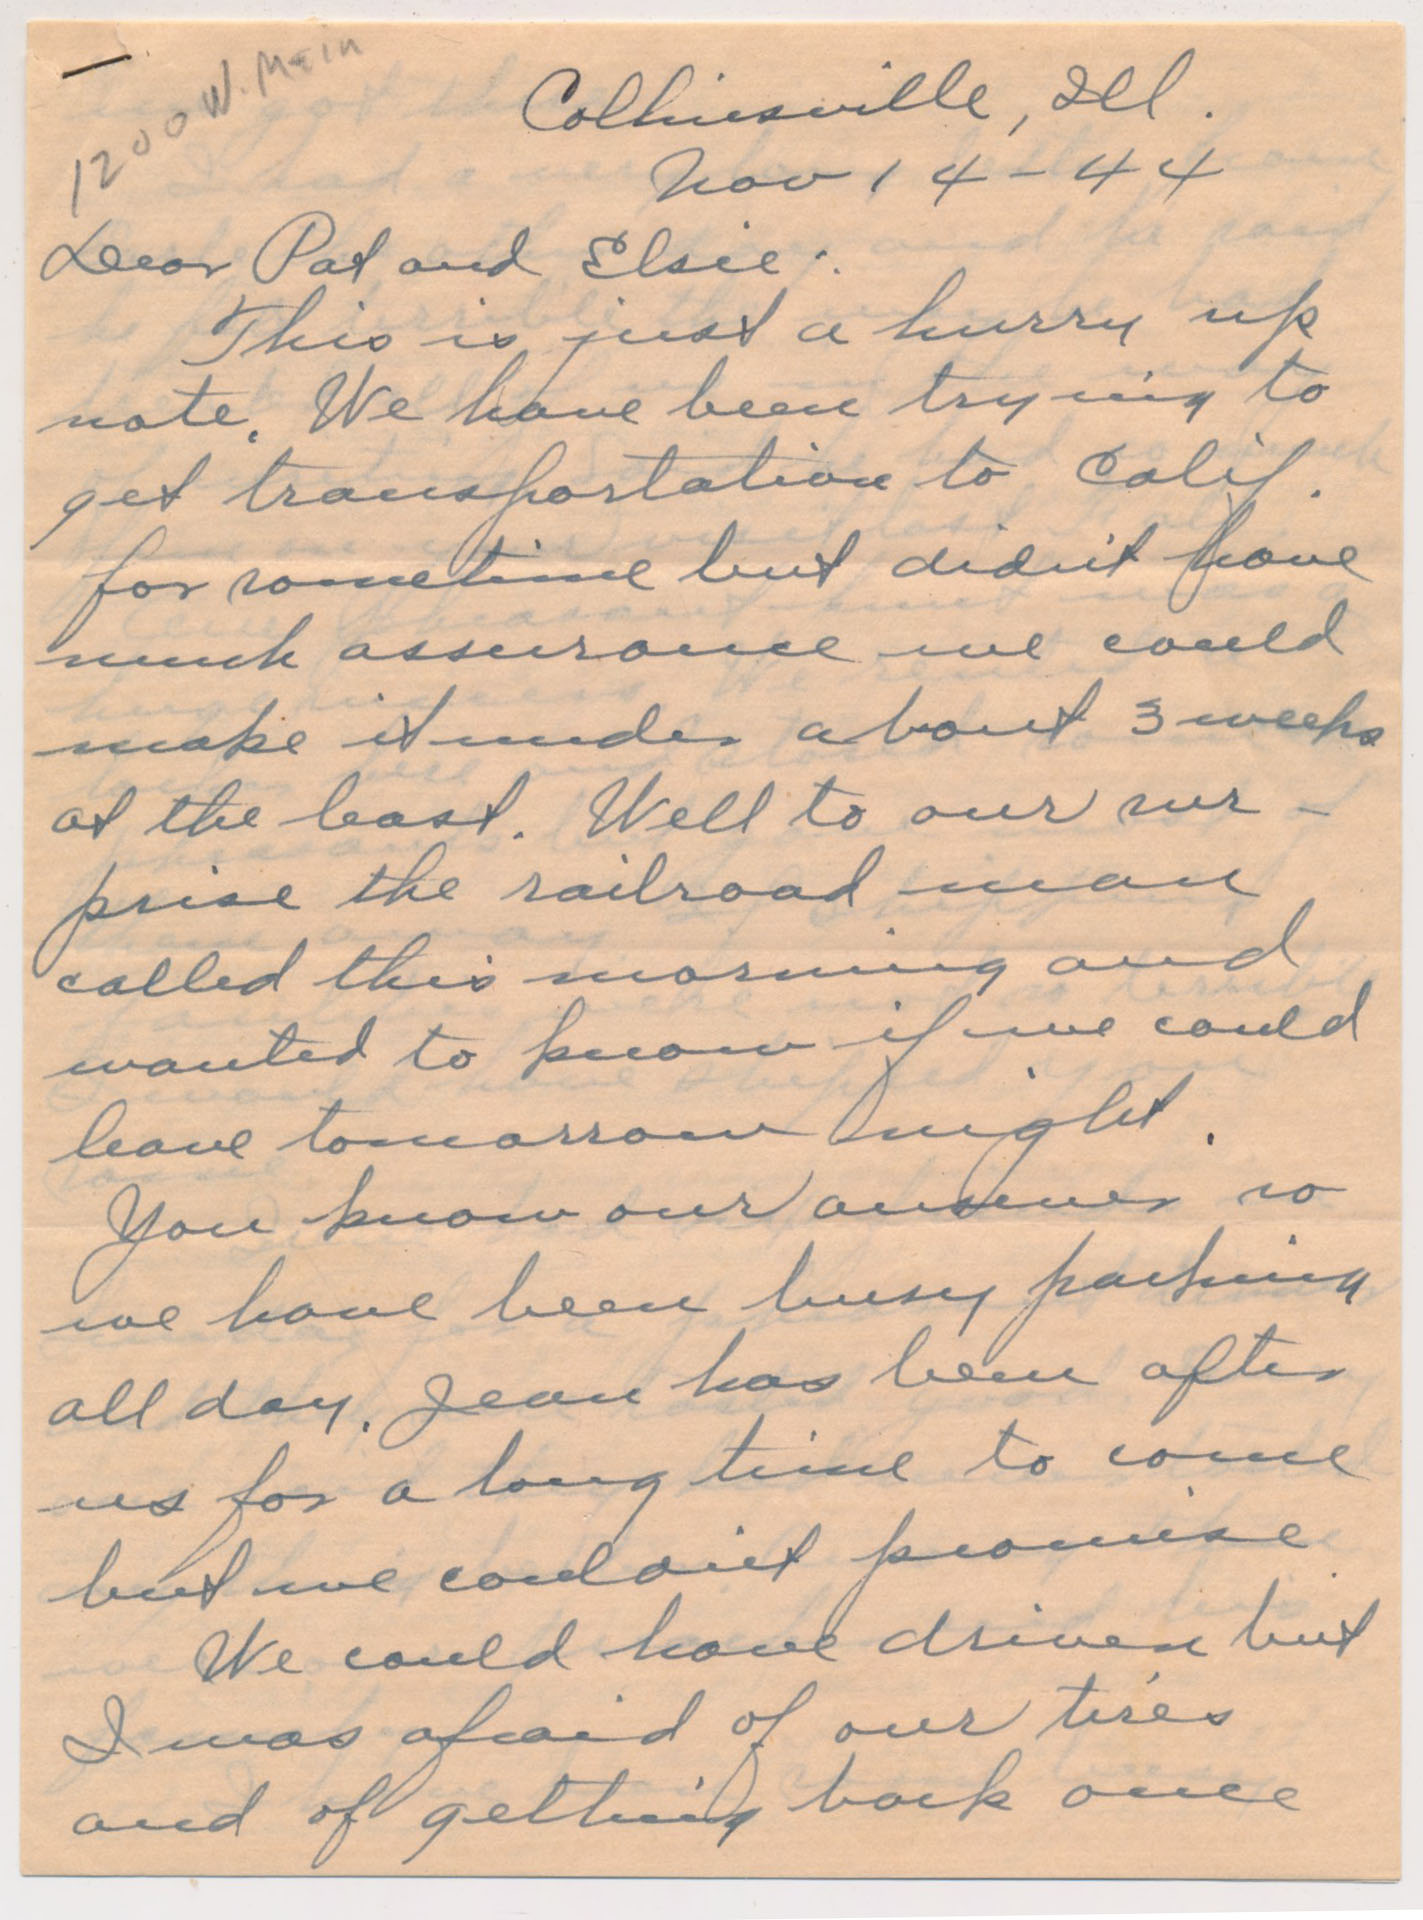 1200 W. Main
Collinsville, Ill.
Nov 14-44
Dear Pat and Elsie:
This is just a hurry up
note. We have been trying to
get transportation to Calif.
for sometime but didn't have
much assurance we could
make it under about 3 weeks
at the least. Well to our sur-
prise the railroad man
called this morning and
wanted to know if we could
leave tomorrow night.
You know our answer so
we have been busy packing
all day. Jean has been after
us for a long time to come
but we couldn't promise.
We could have driven but
I was afraid of our tires
and of getting back once